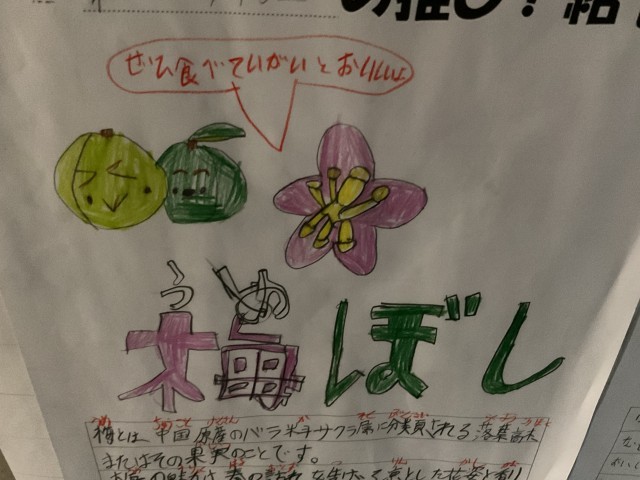 の推し!給
ぜひ食べていがいとおいしいよ
うめ
梅ぼし
梅とは中国原産のバラ科サクラ属に分類される落葉高木
またはその果実のことです。